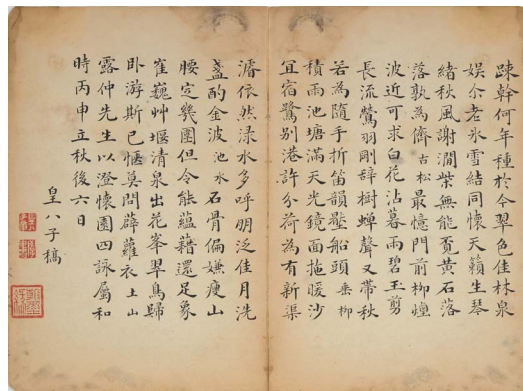 疎幹何年種於今翠色佳林泉
娛尒老氷雪結同懷天籟生琴
緒秋風謝澗柴無能賓黄石落
落孰為儕 古松 最憶門前柳煙
波近可求白花沾暮雨碧玉剪
長流鶯羽剛辭樹蟬聲又帶秋
若為隨手折笛韻壓船頭 垂柳
積雨池塘滿天光鏡面拖暖沙
宜宿鷺別港許分荷為有新渠
濬依然渌水多呼朋泛佳月洗
盞酌金波 池水 石骨偏嫌瘦山
腰定幾圍但令能蘊藉還足象
崔巍艸堰清泉出花峯翠鳥歸
卧游斯已愜莫問薜蘿衣 土山
露仲先生以澄懷園四詠屬和
時丙申立秋後六日
皇八子稿